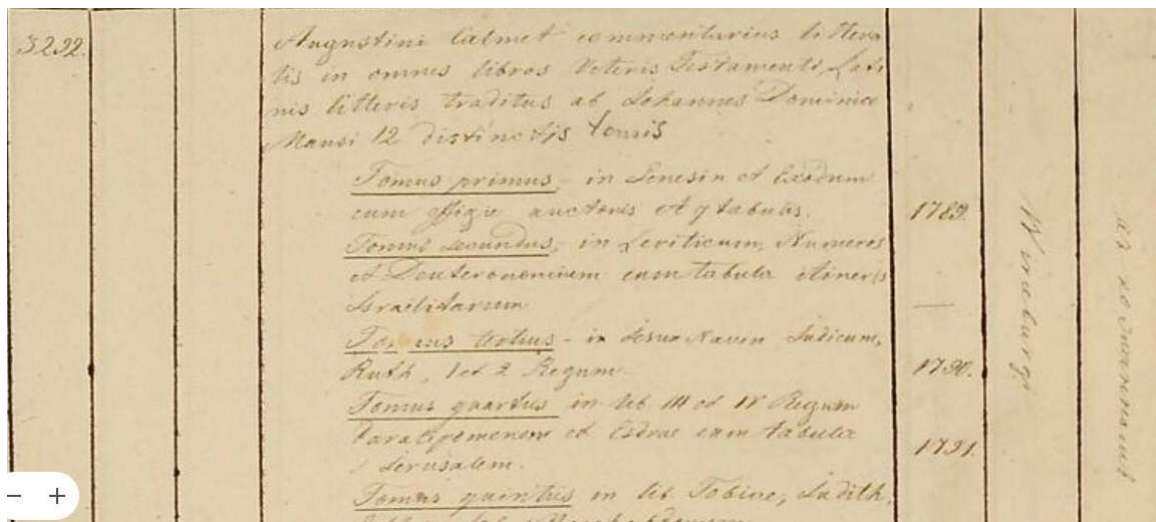 3292.
Augustini Calmet commentarius littera
lis in omnes libros Veteris Testamenti, Lati
nis litteris traditus ab Johannes Dominico
Mansi 12 distinctis tomis
Tomus primus - in Genesin et Exodum
cum effigie auctoris et 7 tabulis.
1789.
Tomus secundus, in Leviticum, Numeros
et Deuteronomium cum tabula itineris
Israelitarum
—
Tomus tertius - in Josua Navin Judicum,
Ruth, 1 et 2 Regum.
1790.
Tomus quartus in lib. III et IV Regum
Paralipomenon et Esdrae cum tabula
Jerusalem.
1791.
Tomus quintus in lib. Tobiae, Judith,
Wirceburgi